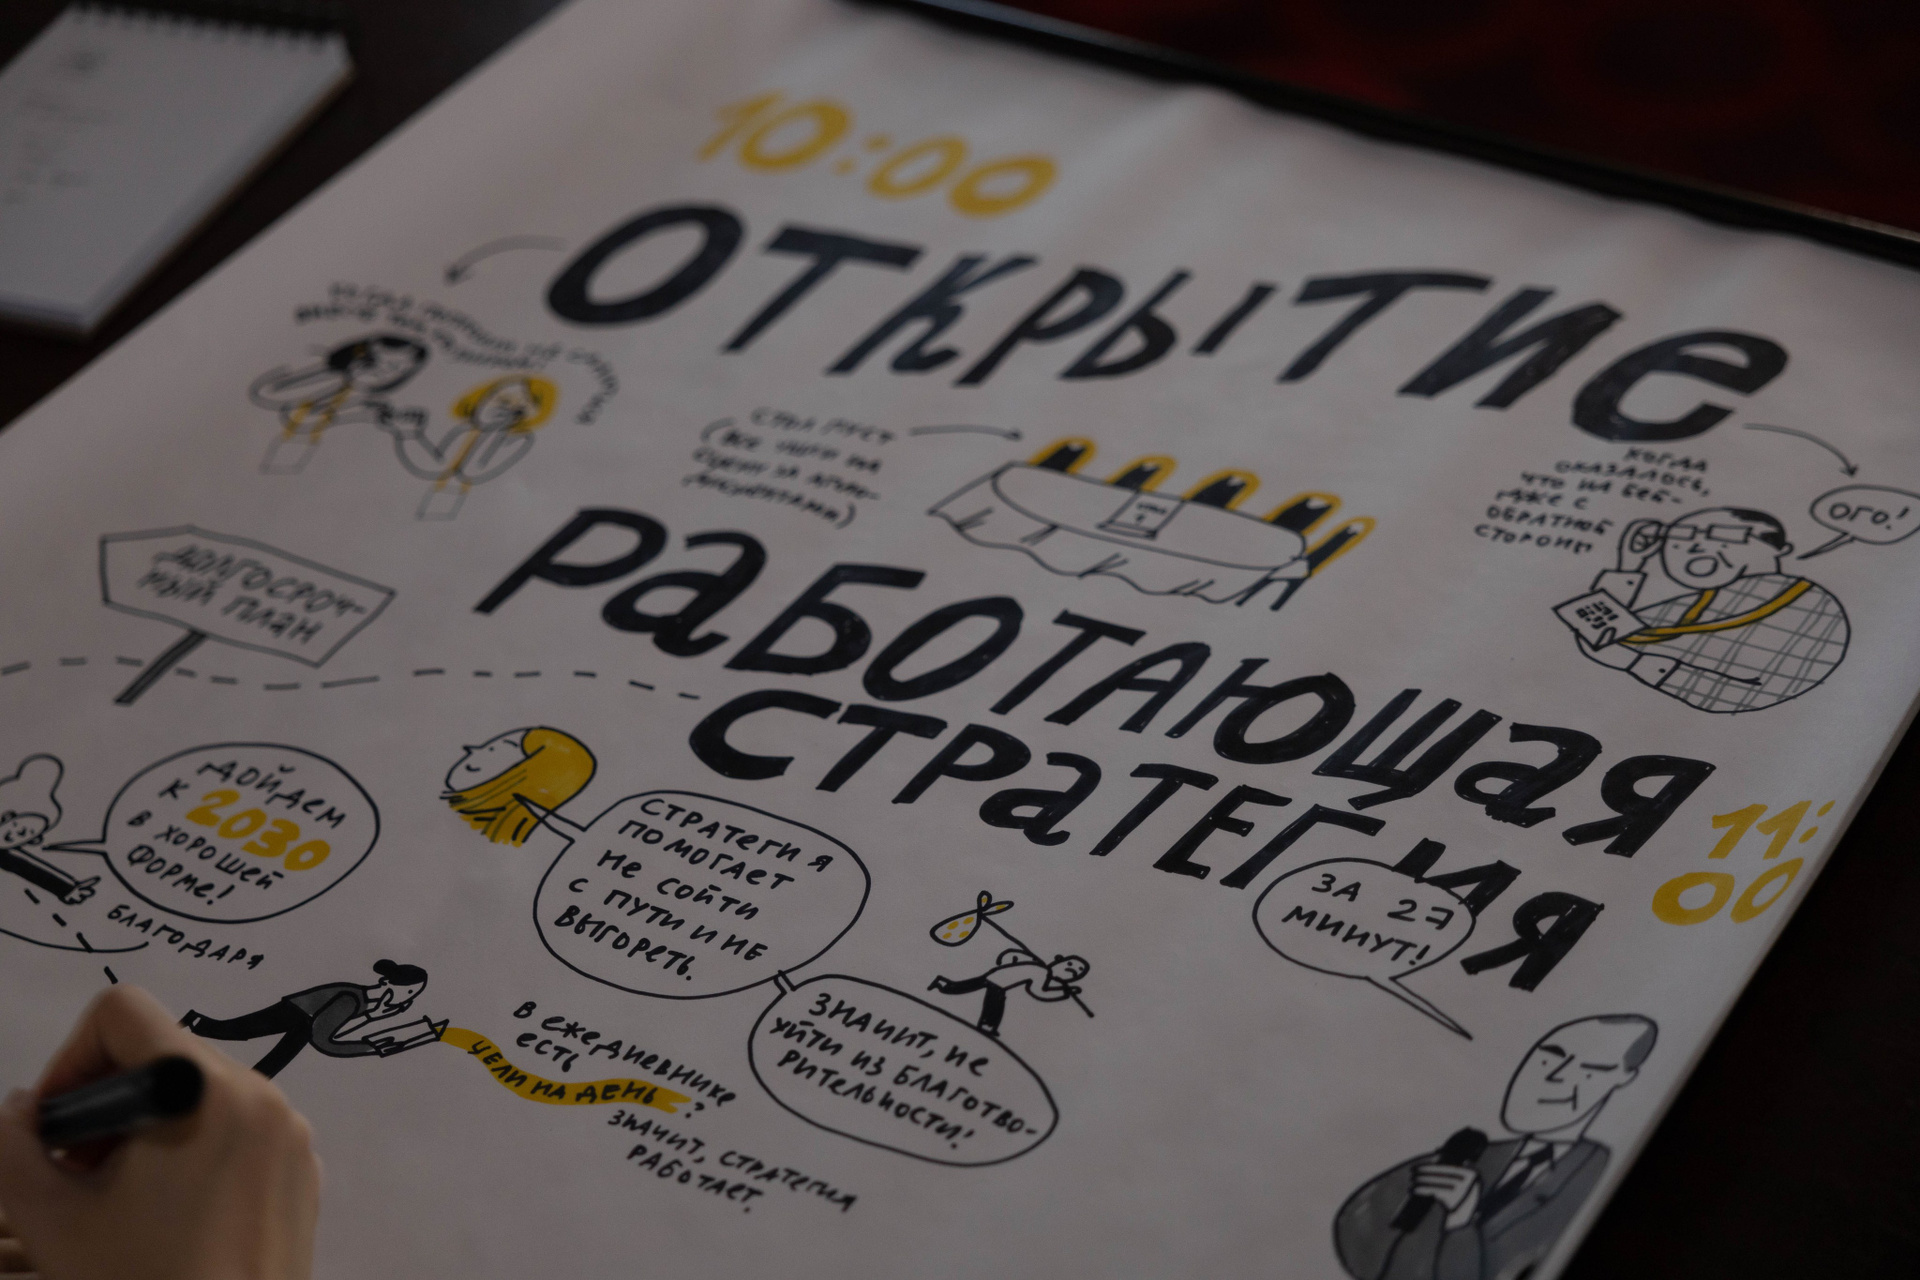 10:00
ОТКРЫТИЕ
СТОЛ ПУСТ
(ВСЕ УШЛИ НА
СЦЕНУ ЗА
КОГДА
ОКАЗАЛОСЬ,
ЧТО НА БЕЙ-
ДЖЕ С
ОБРАТНОЙ
СТОРОНЫ
ОГО!
РАБОТАЮЩАЯ
СТРАТЕГИЯ
11:
00
ДОЛГОСРОЧ-
НЫЙ ПЛАН
ДОЙДЕМ
К 2030
В ХОРОШЕЙ
ФОРМЕ!
БЛАГОДАРЯ
СТРАТЕГИЯ
ПОМОГАЕТ
НЕ СОЙТИ
С ПУТИ И НЕ
ВЫГОРЕТЬ.
ЗНАЧИТ, НЕ
УЙТИ ИЗ БЛАГОТВО-
РИТЕЛЬНОСТИ!
ЗА 27
МИНУТ!
В ЕЖЕДНЕВНИКЕ
ЕСТЬ
ЦЕЛИ НА ДЕНЬ?
ЗНАЧИТ, СТРАТЕГИЯ
РАБОТАЕТ.